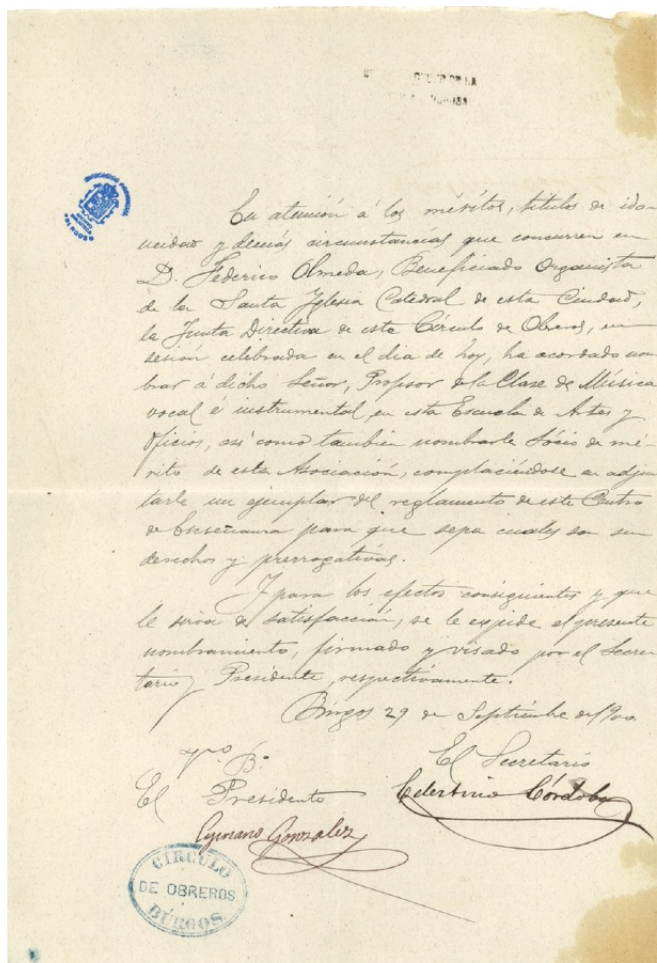 En atención á los méritos, títulos de ido-
neidad y demás circunstancias que concurren en
D. Federico Olmeda, Beneficiado Organista
de la Santa Iglesia Catedral de esta Ciudad,
la Junta Directiva de este Círculo de Obreros, en
sesión celebrada en el dia de hoy, ha acordado nom
brar á dicho Señor, Profesor de la Clase de Música
vocal é instrumental, en esta Escuela de Artes y
Oficios, así como tambien nombrarle Sócio de mé-
rito de esta Asociación, complaciéndose en adjun
tarle un ejemplar del reglamento de este Centro
de Enseñanza para que sepa cuales son sus
derechos y prerrogativas.
Y para los efectos consiguientes y que
le sirva de satisfacción, se le expide el presente
nombramiento, firmado y visado por el Secre
tario y Presidente, respectivamente.
Búrgos 29 de Septiembre de 1900
Vº Bº
El Presidente
Cypriano Gonzalez
El Secretario
Celestino Córdoba
CIRCULO
DE OBREROS
BÚRGOS